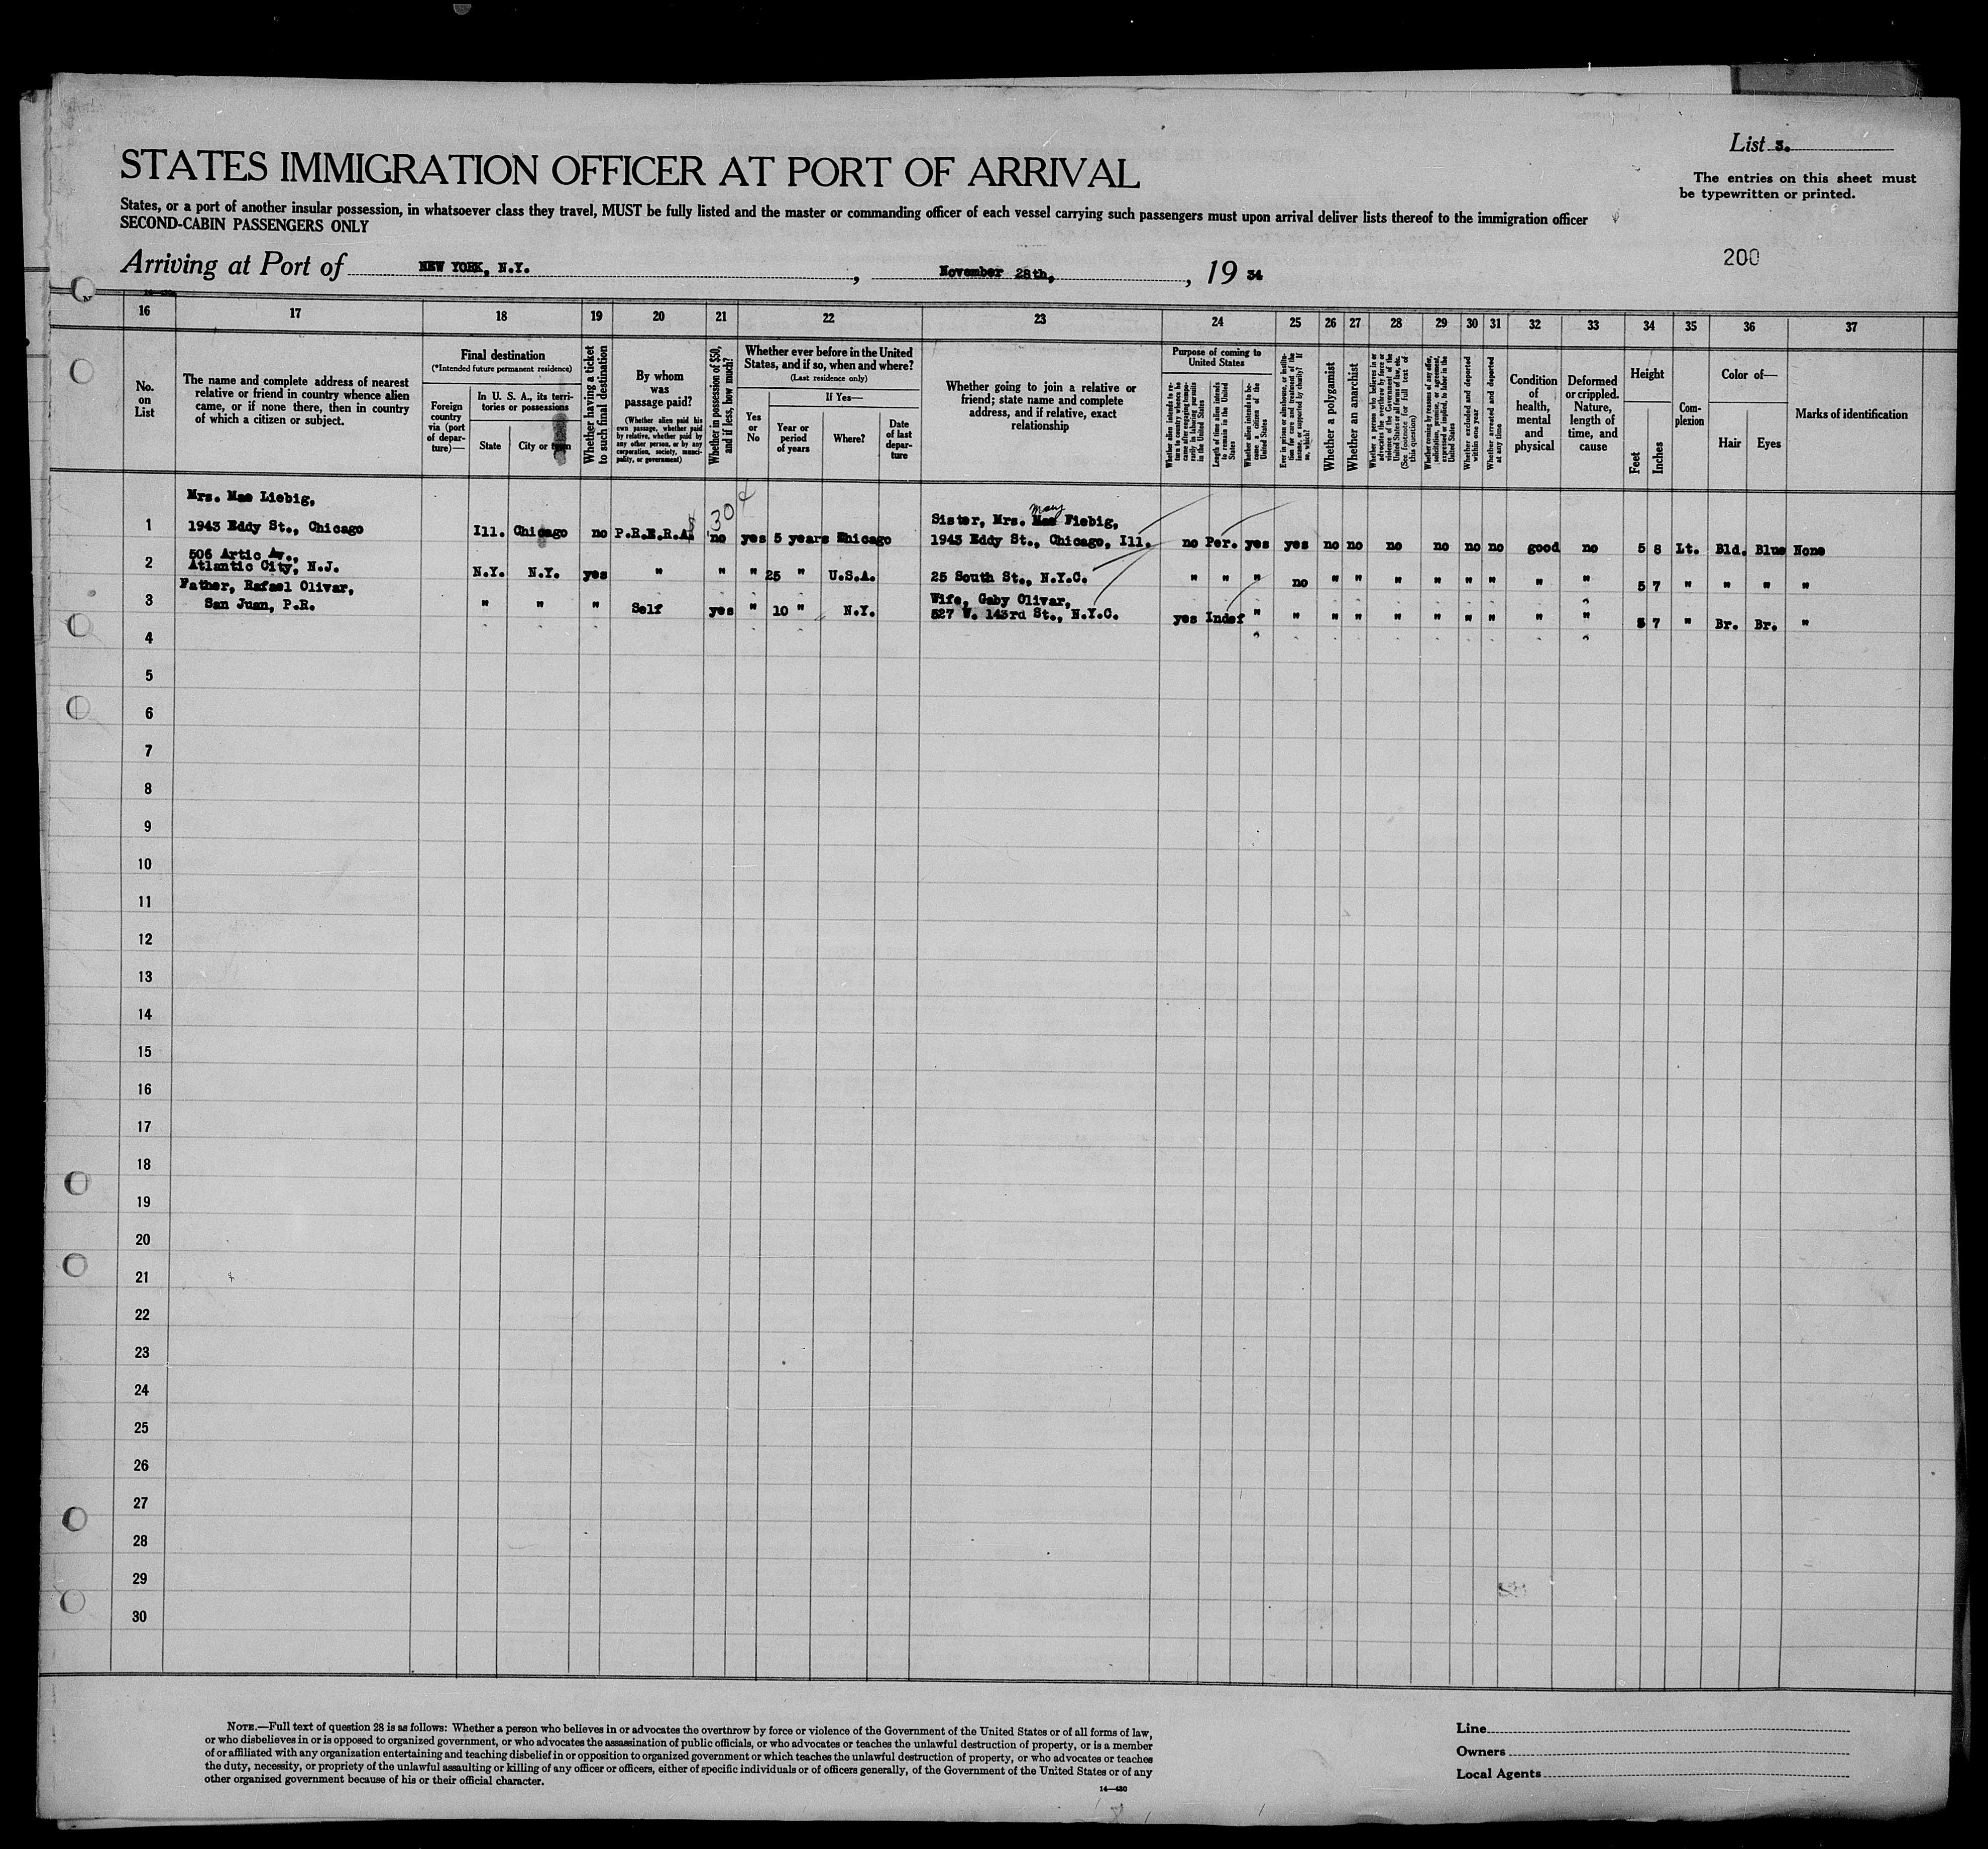 List 3.
The entries on this sheet must
be typewritten or printed.
STATES IMMIGRATION OFFICER AT PORT OF ARRIVAL
States, or a port of another insular possession, in whatsoever class they travel, MUST be fully listed and the master or commanding officer of each vessel carrying such passengers must upon arrival deliver lists thereof to the immigration officer
SECOND-CABIN PASSENGERS ONLY
200
Arriving at Port of NEW YORK, N.Y., November 28th, 19 34
16 17 18 19 20 21 22 23 24 25 26 27 28 29 30 31 32 33 34 35 36 37
No.
on
List
The name and complete address of nearest
relative or friend in country whence alien
came, or if none there, then in country
of which a citizen or subject.
Final destination
(*Intended future permanent residence)
Foreign
country
via (port
of depar-
ture)—
In U. S. A., its terri-
tories or possessions
State
City or town
Whether having a ticket
to such final destination
By whom
was
passage paid?
(Whether alien paid his
own passage, whether paid
by relative, whether paid by
any other person, or by any
corporation, society, munici-
pality, or government)
Whether in possession of $50,
and if less, how much?
Whether ever before in the United
States, and if so, when and where?
(Last residence only)
Yes
or
No
If Yes—
Year or
period
of years
Where?
Date
of last
depar-
ture
Whether going to join a relative or
friend; state name and complete
address, and if relative, exact
relationship
Purpose of coming to
United States
Whether alien intends to re-
turn to country whence he
came after engaging tempo-
rarily in laboring pursuits
in the United States
Length of time alien intends
to remain in the United
States
Whether alien intends to be-
come a citizen of the
United States
Ever in prison or almshouse, or institu-
tion for care and treatment of the
insane, or supported by charity? If
so, which?
Whether a polygamist
Whether an anarchist
Whether a person who believes in or
advocates the overthrow by force or
violence of the Government of the
United States or all forms of law, etc.
(See footnote for full text of
this question)
Whether coming by reasons of any offer,
solicitation, promise, or agreement,
expressed or implied, to labor in the
United States
Whether excluded and deported
within one year
Whether arrested and deported
at any time
Condition
of
health,
mental
and
physical
Deformed
or crippled.
Nature,
length of
time, and
cause
Height
Feet
Inches
Com-
plexion
Color of—
Hair
Eyes
Marks of identification
Mrs. Mae Liebig,
1 1943 Eddy St., Chicago Ill. Chicago no P.R.E.R.A. $ 30 no yes 5 years Chicago
Sister, Mrs. Mae Mary Fiebig,
1943 Eddy St., Chicago, Ill. no Per. yes yes no no no no no no good no 5 8 Lt. Bld. Blue None
506 Artic Av.,
2 Atlantic City, N.J. N.Y. N.Y. yes " " " 25 " U.S.A. 25 South St., N.Y.C. " " " no " " " " " " " " 5 7 " " " "
Father, Rafael Olivar,
3 San Juan, P.R. " " " Self yes " 10 " N.Y.
Wife, Gaby Olivar,
527 W. 143rd St., N.Y.C. yes Indef " " " " " " " " " " 5 7 " Br. Br. "
4
5
6
7
8
9
10
11
12
13
14
15
16
17
18
19
20
21
22
23
24
25
26
27
28
29
30
NOTE.—Full text of question 28 is as follows: Whether a person who believes in or advocates the overthrow by force or violence of the Government of the United States or of all forms of law,
or who disbelieves in or is opposed to organized government, or who advocates the assassination of public officials, or who advocates or teaches the unlawful destruction of property, or is a member
of or affiliated with any organization entertaining and teaching disbelief in or opposition to organized government or which teaches the unlawful destruction of property, or who advocates or teaches
the duty, necessity, or propriety of the unlawful assaulting or killing of any officer or officers, either of specific individuals or of officers generally, of the Government of the United States or of any
other organized government because of his or their official character.
14—430
Line
Owners
Local Agents